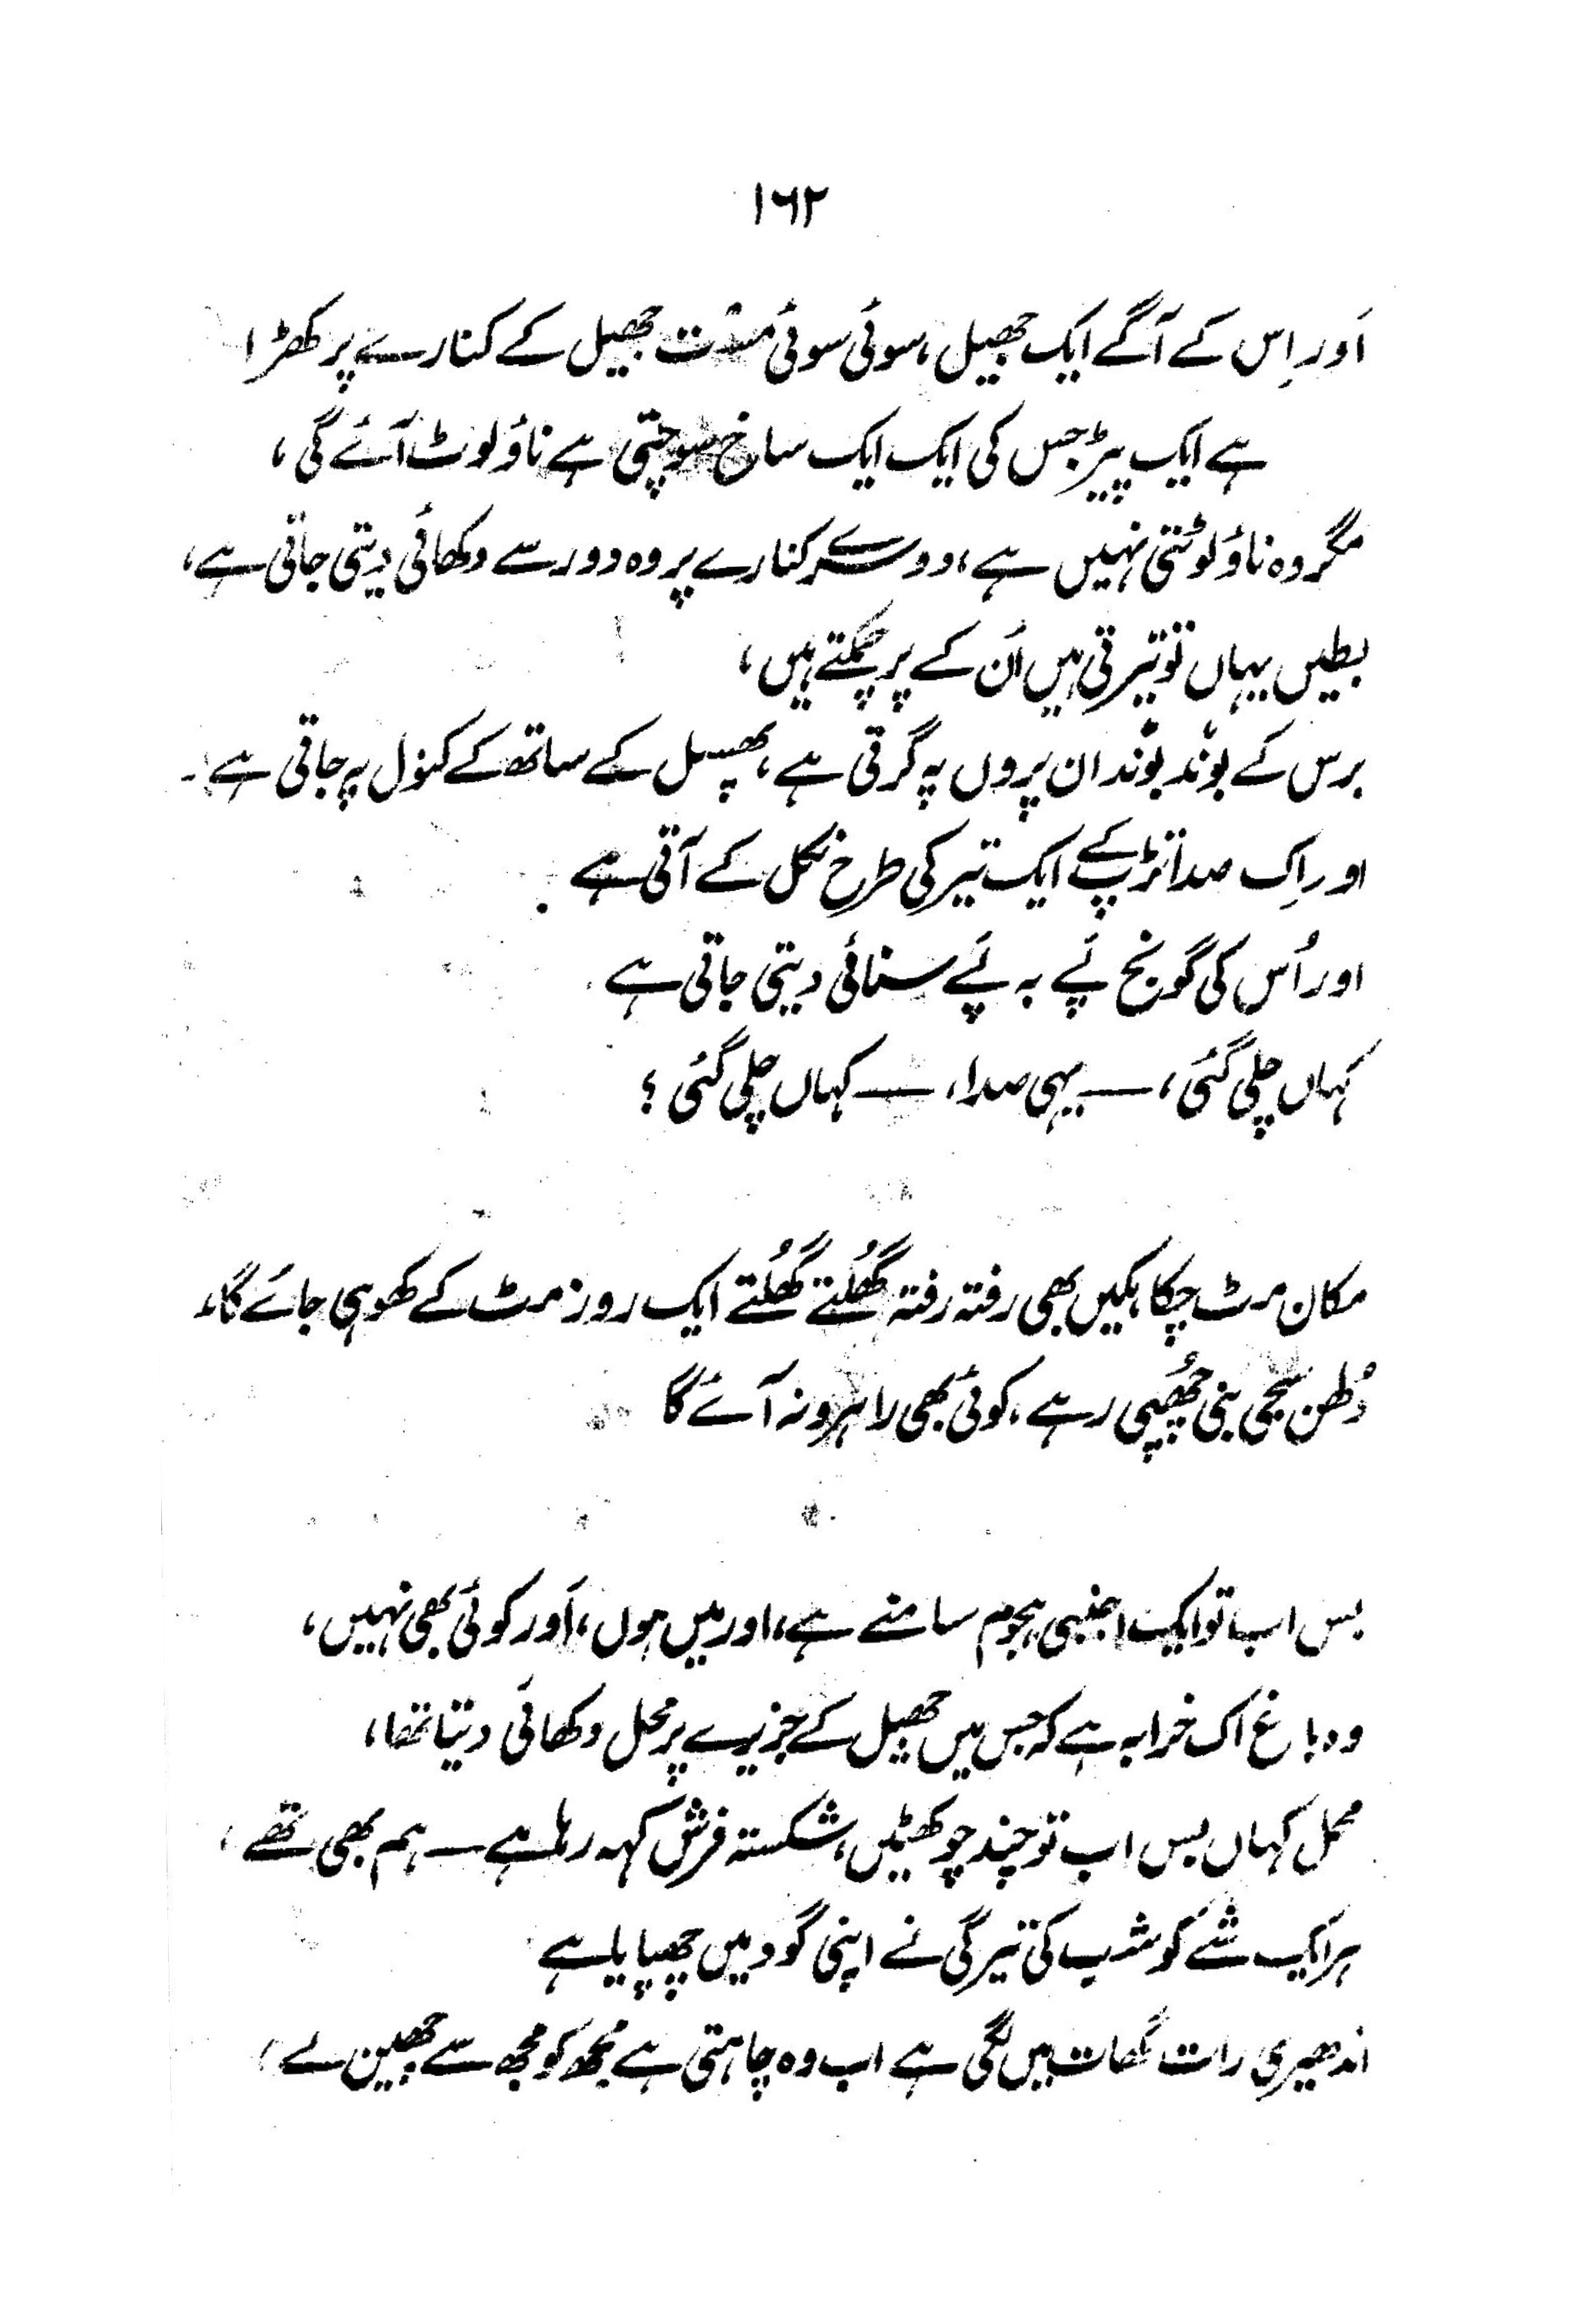 ۱۶۲
اَور اِس کے آگے ایک جھیل، سوئی سوئی مست جھیل کے کنارے پر کھڑا
ہے ایک پیڑ جس کی ایک ایک ساخ سوچتی ہے ناؤ لوٹ آئے گی،
مگر وہ ناؤ لوٹتی نہیں ہے، دوسرے کنارے پر وہ دور سے دکھائی دیتی جاتی ہے،
بطیں یہاں تو تیرتی ہیں اُن کے پر چمکتے ہیں،
برس کے بوُند بوُند ان پروں پہ گرتی ہے، پھسل کے ساتھ کے کنول پہ جاتی ہے۔
اور اِک صدا تڑپ کے ایک تیر کی طرح نکل کے آتی ہے
اور اُس کی گونج پَے بہ پَے سنائی دیتی جاتی ہے
کہاں چلی گئی، — یہی صدا، — کہاں چلی گئی؟
مکان مٹ چکا، مکیں بھی رفتہ رفتہ گھُلتے گھُلتے ایک روز مٹ کے کھو ہی جائے گا،
دُلھن سجی بنی چھُپی رہے، کوئی بھی راہرو نہ آئے گا
بس اب تو ایک اجنبی ہجوم سامنے ہے، اور میں ہوں، اَور کوئی بھی نہیں،
وہ باغ اک خرابہ ہے کہ جس میں جھیل کے جزیرے پر محل دکھائی دیتا تھا،
محل کہاں بس اب تو چند چوکھٹیں، شکستہ فرش کہہ رہا ہے — ہم بھی تھے،
ہر ایک شے کو شب کی تیرگی نے اپنی گود میں چھپایا ہے
اندھیری رات گھات میں لگی ہے اب وہ چاہتی ہے مجھ کو مجھ سے چھین لے،